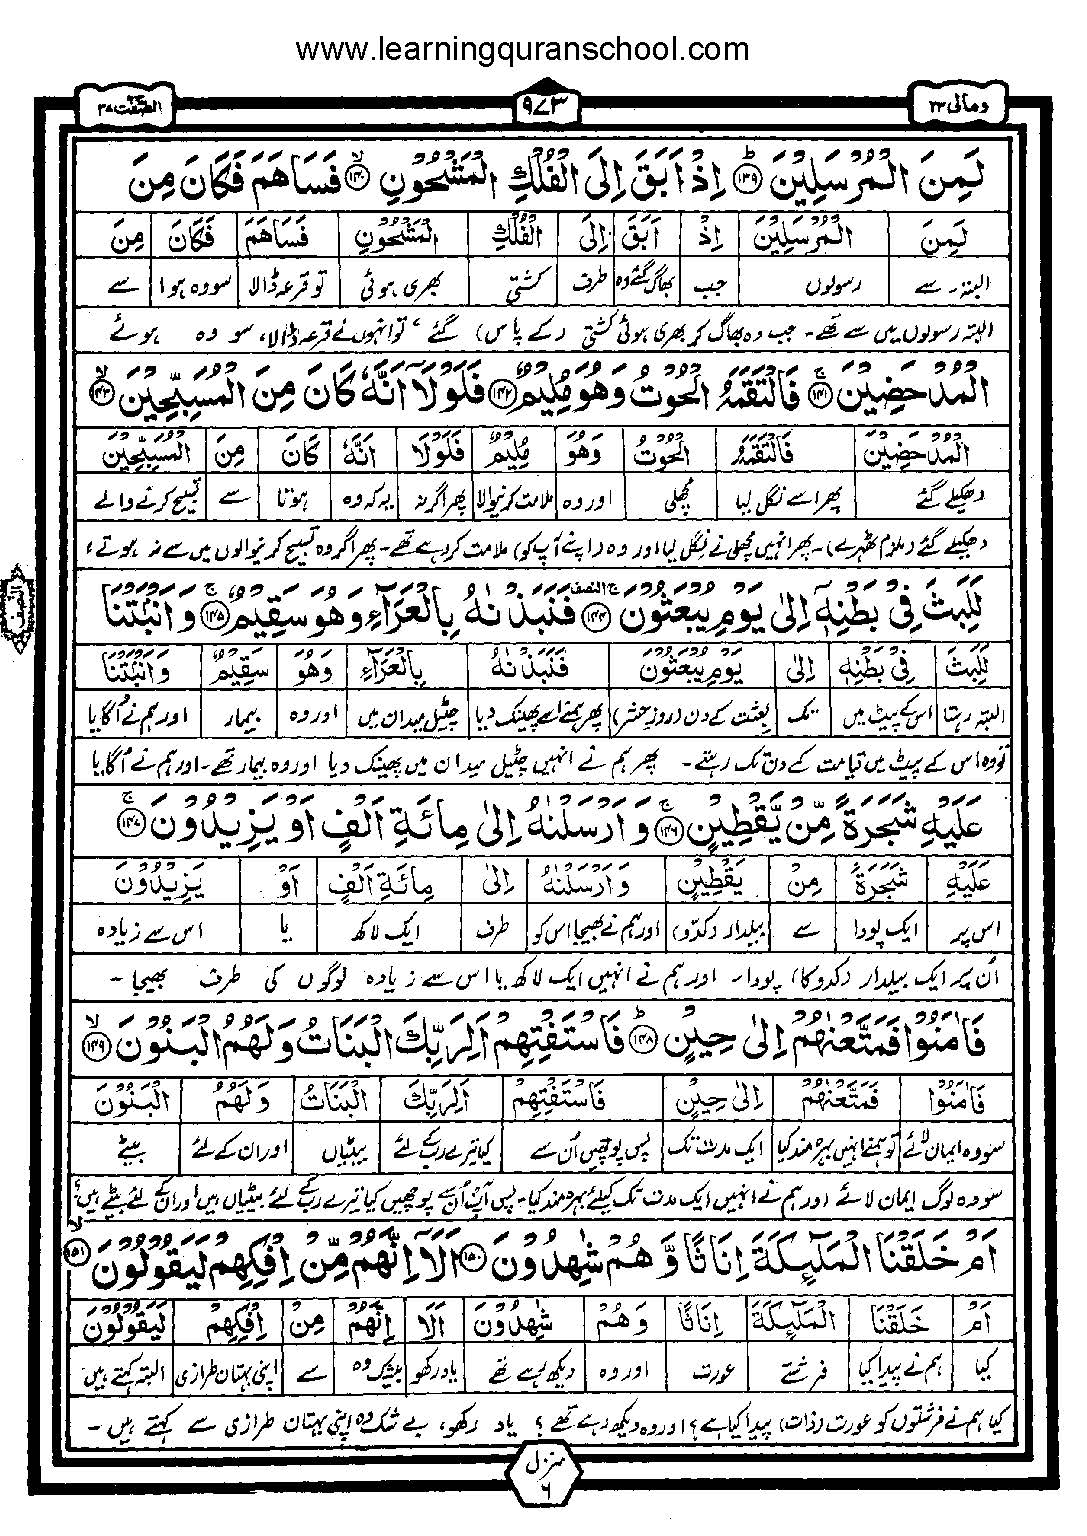 www.learningquranschool.com
ومالی ۲۳
۹۷۳
الصّٰٓفّٰت ۳۷
لَمِنَ الْمُرْسَلِيْنَ ۱۳۹ اِذْ اَبَقَ اِلَى الْفُلْكِ الْمَشْحُوْنِ ۱۴۰ فَسَاهَمَ فَكَانَ مِنَ
لَمِنَ الْمُرْسَلِيْنَ اِذْ اَبَقَ اِلَى الْفُلْكِ الْمَشْحُوْنِ فَسَاهَمَ فَكَانَ مِنَ
البتہ۔ سے رسولوں جب بھاگ گئے وہ طرف کشتی بھری ہوئی تو قرعہ ڈالا سو وہ ہوا سے
البتہ رسولوں میں سے تھے۔ جب وہ بھاگ کر بھری ہوئی کشتی (کے پاس) گئے، تو انہوں نے قرعہ ڈالا، سو وہ ہوئے
الْمُدْحَضِيْنَ ۱۴۱ فَالْتَقَمَهُ الْحُوْتُ وَهُوَ مُلِيْمٌ ۱۴۲ فَلَوْلَاۤ اَنَّهٗ كَانَ مِنَ الْمُسَبِّحِيْنَ ۱۴۳
الْمُدْحَضِيْنَ فَالْتَقَمَهُ الْحُوْتُ وَهُوَ مُلِيْمٌ فَلَوْلَا اَنَّهٗ كَانَ مِنَ الْمُسَبِّحِيْنَ
دھکیلے گئے پھر اسے نگل لیا مچھلی اور وہ ملامت کرنیوالا پھر اگر نہ یہ کہ وہ ہوتا سے تسبیح کرنے والے
دھکیلے گئے (ملزم ٹھہرے)۔ پھر انہیں مچھلی نے نگل لیا اور وہ (اپنے آپ کو) ملامت کر رہے تھے۔ پھر اگر وہ تسبیح کرنیوالوں میں سے نہ ہوتے،
لَلَبِثَ فِيْ بَطْنِهٖۤ اِلٰى يَوْمِ يُبْعَثُوْنَ ۱۴۴ فَنَبَذْنٰهُ بِالْعَرَآءِ وَهُوَ سَقِيْمٌ ۱۴۵ وَاَنْۢبَتْنَا
النصف
لَلَبِثَ فِيْ بَطْنِهٖ اِلٰى يَوْمِ يُبْعَثُوْنَ فَنَبَذْنٰهُ بِالْعَرَآءِ وَهُوَ سَقِيْمٌ وَاَنْۢبَتْنَا
البتہ رہتا اس کے پیٹ میں تک بعثت کے دن (روز حشر) پھر ہم نے اسے پھینک دیا چٹیل میدان میں اور وہ بیمار اور ہم نے اُگایا
تو وہ اس کے پیٹ میں قیامت کے دن تک رہتے۔ پھر ہم نے انہیں چٹیل میدان میں پھینک دیا اور وہ بیمار تھے۔ اور ہم نے اُگایا
عَلَيْهِ شَجَرَةً مِّنْ يَّقْطِيْنٍ ۱۴۶ وَاَرْسَلْنٰهُ اِلٰى مِائَةِ اَلْفٍ اَوْ يَزِيْدُوْنَ ۱۴۷
عَلَيْهِ شَجَرَةً مِنْ يَقْطِيْنٍ وَاَرْسَلْنٰهُ اِلٰى مِائَةِ اَلْفٍ اَوْ يَزِيْدُوْنَ
اس پر ایک پودا سے بیلدار (کدو) اور ہم نے بھیجا اس کو طرف ایک لاکھ یا اس سے زیادہ
اُن پر ایک بیلدار (کدو کا) پودا۔ اور ہم نے انہیں ایک لاکھ یا اس سے زیادہ لوگوں کی طرف بھیجا۔
فَاٰمَنُوْا فَمَتَّعْنٰهُمْ اِلٰى حِيْنٍ ۱۴۸ فَاسْتَفْتِهِمْ اَلِرَبِّكَ الْبَنَاتُ وَلَهُمُ الْبَنُوْنَ ۱۴۹
فَاٰمَنُوْا فَمَتَّعْنٰهُمْ اِلٰى حِيْنٍ فَاسْتَفْتِهِمْ اَلِرَبِّكَ الْبَنَاتُ وَلَهُمُ الْبَنُوْنَ
سو وہ ایمان لائے تو ہم نے انہیں بہرہ مند کیا ایک مدت تک پس پوچھیں اُن سے کیا تیرے رب کے لئے بیٹیاں اور ان کے لئے بیٹے
سو وہ لوگ ایمان لائے اور ہم نے انہیں ایک مدت تک کیلئے بہرہ مند کیا۔ پس آپ اُن سے پوچھیں کیا تیرے رب کے لئے بیٹیاں ہیں اور ان کے لئے بیٹے ہیں؟
اَمْ خَلَقْنَا الْمَلٰٓئِكَةَ اِنَاثًا وَّهُمْ شٰهِدُوْنَ ۱۵۰ اَلَاۤ اِنَّهُمْ مِّنْ اِفْكِهِمْ لَيَقُوْلُوْنَ ۱۵۱
اَمْ خَلَقْنَا الْمَلٰٓئِكَةَ اِنَاثًا وَهُمْ شٰهِدُوْنَ اَلَا اِنَّهُمْ مِنْ اِفْكِهِمْ لَيَقُوْلُوْنَ
کیا ہم نے پیدا کیا فرشتے عورت اور وہ دیکھ رہے تھے یاد رکھو بیشک وہ سے اپنی بہتان طرازی البتہ کہتے ہیں
کیا ہم نے فرشتوں کو عورت (ذات) پیدا کیا ہے؟ اور وہ دیکھ رہے تھے؟ یاد رکھو، بے شک وہ اپنی بہتان طرازی سے کہتے ہیں۔
منزل
۶